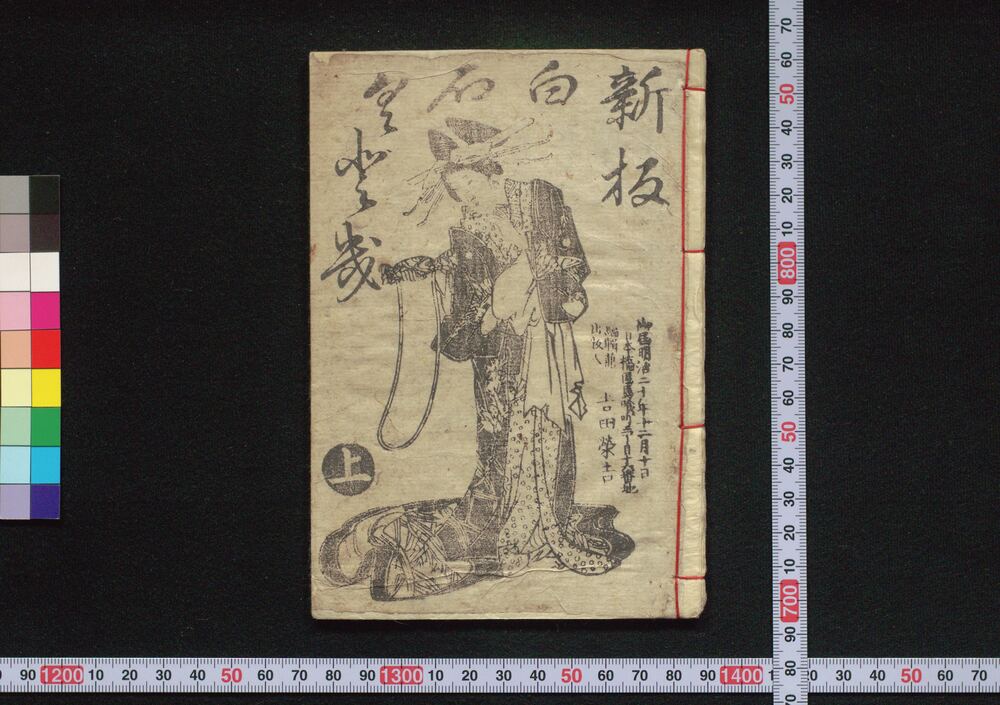 新板
白
石
上
御届明治二十年十二月十日
日本橋区馬喰町
編輯兼
出版人
吉田栄吉
70
60
50
40
30
20
10
800
90
80
70
60
50
40
30
20
10
700
90
80
70
90
1200
10
20
30
40
50
60
70
80
90
1300
10
20
30
40
50
60
70
80
90
1400
30
40
50
60
70